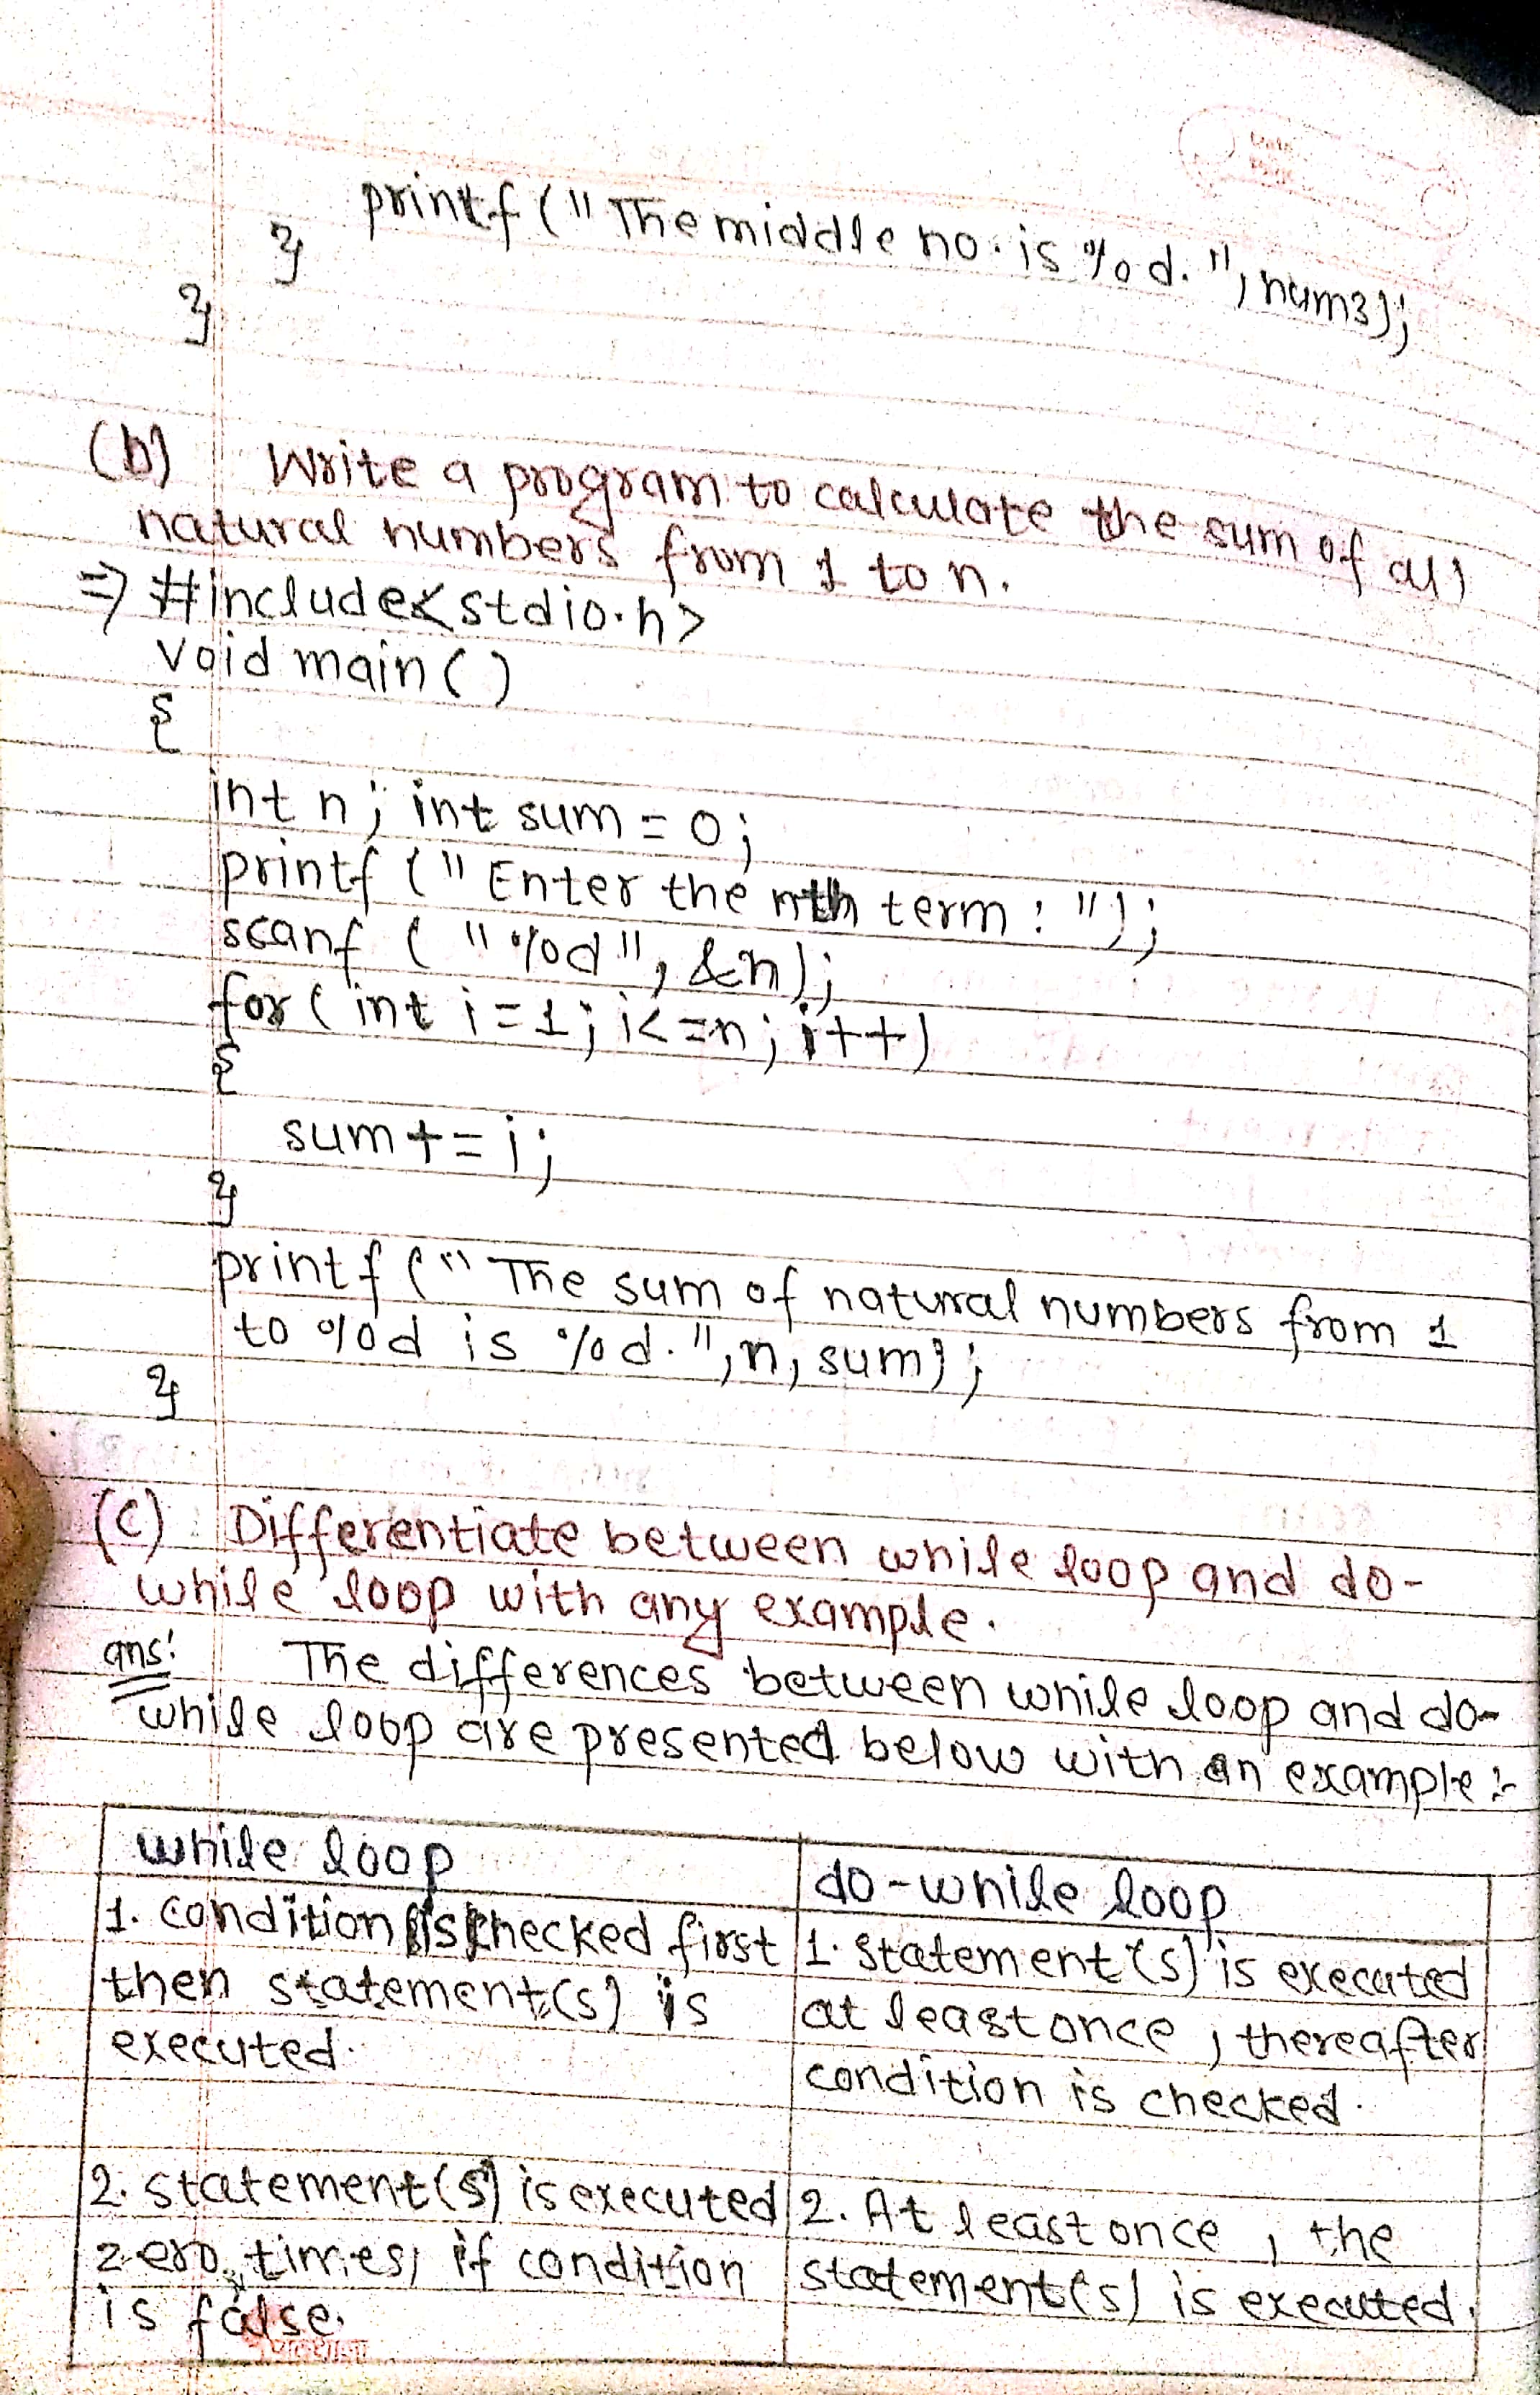 printf("The middle no. is %d.", num3);
}
}
(b) Write a program to calculate the sum of all
natural numbers from 1 to n.
=> #include<stdio.h>
void main()
{
int n; int sum = 0;
printf("Enter the nth term : ");
scanf ("%d", &n);
for(int i=1; i<=n; i++)
{
sum+=i;
}
printf("The sum of natural numbers from 1
to %d is %d.", n, sum);
}
(c) Differentiate between while loop and do-
while loop with any example.
ans: The differences between while loop and do-
while loop are presented below with an example :-
while loop
1. condition is checked first
then statement(s) is
executed.
2. statement(s) is executed
zero times, if condition
is false.
do-while loop
1. statement(s) is executed
at least once, thereafter
condition is checked.
2. At least once, the
statement(s) is executed.